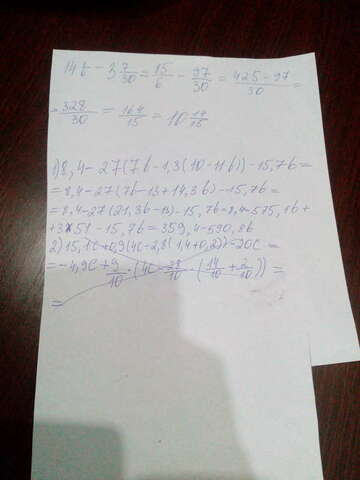 14b - 3 7/30 = 15/6 - 97/30 = 425-97/30 =
= 328/30 = 164/15 = 10 14/15
1) 8,4-27(7b-1,3(10-11b))-15,7b=
=8,4-27(7b-13+14,3b)-15,7b=
=8,4-27(21,3b-13)-15,7b=8,4-575,1b+
+351-15,7b=359,4-590,8b
2) 15,1c+0,9(4c-2,8(1,4+0,2))-20c=
=-4,9c+9/10·(4c-28/10·(14/10+2/10))=
=